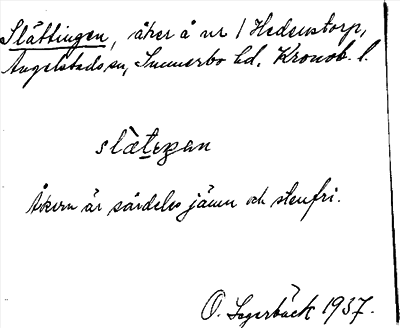 Slättingen, åker å nr 1 Hedenstorp,
Angelstads sn, Sunnerbo hd. Kronob. l.
Åkern är särdeles jämn och stenfri.
O. Lagerbäck 1937.